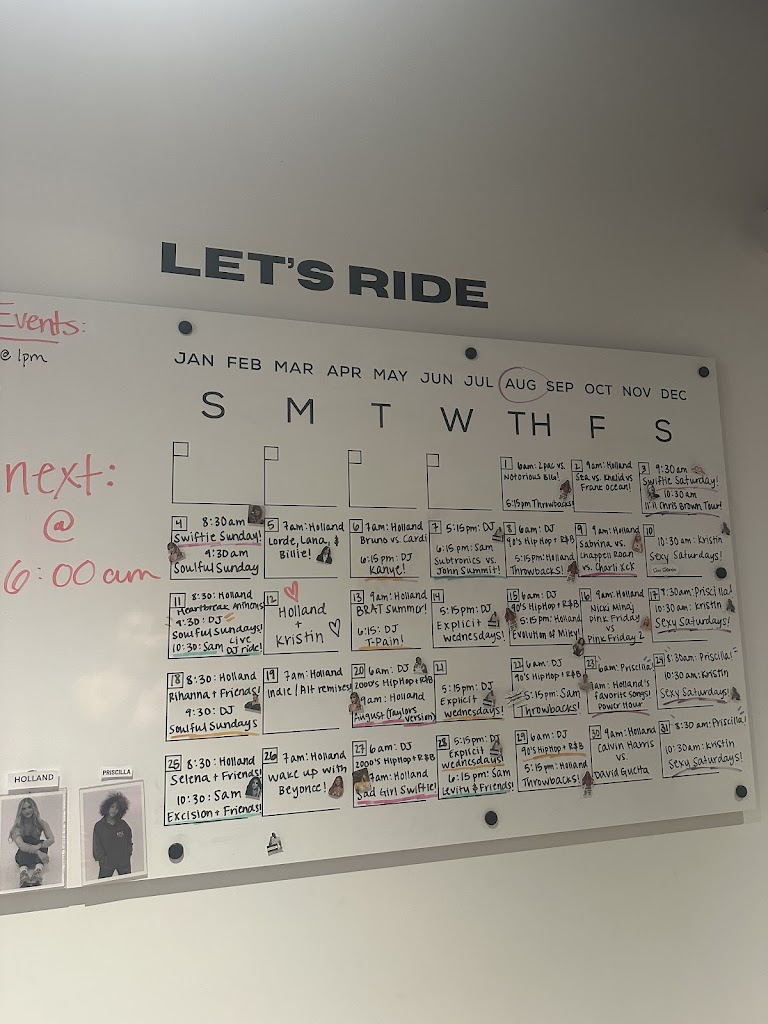 LET'S RIDE
Events:
@ 1pm
next:
@
6:00 am
JAN FEB MAR APR MAY JUN JUL AUG SEP OCT NOV DEC
S M T W TH F S
1 6am: 2pac vs.
Notorious BIG!
5:15pm Throwbacks!
2 9am: Holland
Sza vs. Khalid vs
Frank Ocean!
3 9:30am
Swiftie Saturday!
10:30am
11:11 Chris Brown Tour!
4 8:30am
Swiftie Sunday!
9:30am
Soulful Sunday
5 7am: Holland
Lorde, Lana, &
Billie!
6 7am: Holland
Bruno vs. Cardi
6:15pm: DJ
Kanye!
7 5:15pm: DJ
6:15pm: Sam
Subtronics vs.
John Summit!
8 6am: DJ
90's HipHop + R&B
5:15pm: Holland
Throwbacks!
9 9am: Holland
Sabrina vs.
Chappell Roan
vs. Charli XCX
10 10:30am: Kristin
Sexy Saturdays!
11 8:30: Holland
Heartbreak Anthems
9:30: DJ
Soulful Sundays!
10:30: Sam Live
DJ ride!
12 Holland
+
Kristin
13 9am: Holland
BRAT Summer!
6:15: DJ
T-Pain!
14
5:15pm: DJ
Explicit
Wednesdays!
15 6am: DJ
90's HipHop + R&B
5:15pm: Holland
Evolution of Miley!
16 9am: Holland
Nicki Minaj
Pink Friday
vs
Pink Friday 2
17 9:30am: Priscilla!
10:30am: Kristin
Sexy Saturdays!
18 8:30: Holland
Rihanna + Friends!
9:30: DJ
Soulful Sundays
19 7am: Holland
Indie/Alt remixes
20 6am: DJ
2000's HipHop + R&B
9am: Holland
August (Taylors version)
21
5:15pm: DJ
Explicit
Wednesdays!
22 6am: DJ
90's HipHop + R&B
5:15pm: Sam
Throwbacks!
23 6am: Priscilla!
9am: Holland's
favorite songs!
Power Hour
24 8:30am: Priscilla!
10:30am: Kristin
Sexy Saturdays!
25 8:30: Holland
Selena + Friends!
10:30: Sam
Excision + Friends!
26 7am: Holland
Wake up with
Beyonce!
27 6am: DJ
2000's HipHop + R&B
9am: Holland
Sad Girl Swiftie!
28 5:15pm: DJ
Explicit
Wednesdays!
6:15pm: Sam
Levity & Friends!
29 6am: DJ
90's HipHop + R&B
5:15pm: Holland
Throwbacks!
30 9am: Holland
Calvin Harris
vs.
David Guetta
31 8:30am: Priscilla!
10:30am: Kristin
Sexy Saturdays!
HOLLAND
PRISCILLA